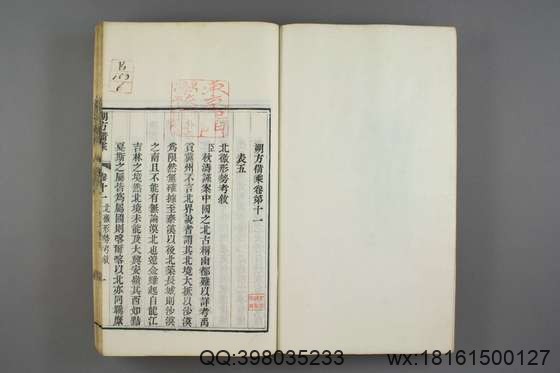 朔方備乘卷第十一
表五
北徼形勢考敘
臣秋濤謹案中國之北古稱幽都難以詳考禹
貢冀州不言北界說者謂其北境大抵以沙漠
為限然無確據至秦漢以後北築長城則沙漠
之南且不能有無論漠北也遼金雖起自龍江
吉林之境然北境未能及大興安嶺其西如黠
戛斯之屬皆為屬國則喀爾喀以北亦同羈縻
朔方備乘
卷十一
北徼形勢考敘
一
QQ:398035233
wx:18161500127